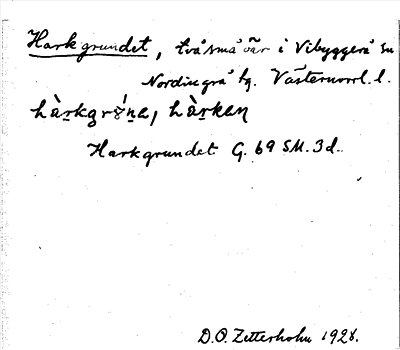 Harkgrundet, två små öar i Vibyggerå sn
Nordingrå tg. Västernorrl. l.
hàrkgrǿne, hàrken
Harkgrundet G. 69 SM. 3d.
D.O. Zetterholm 1928.